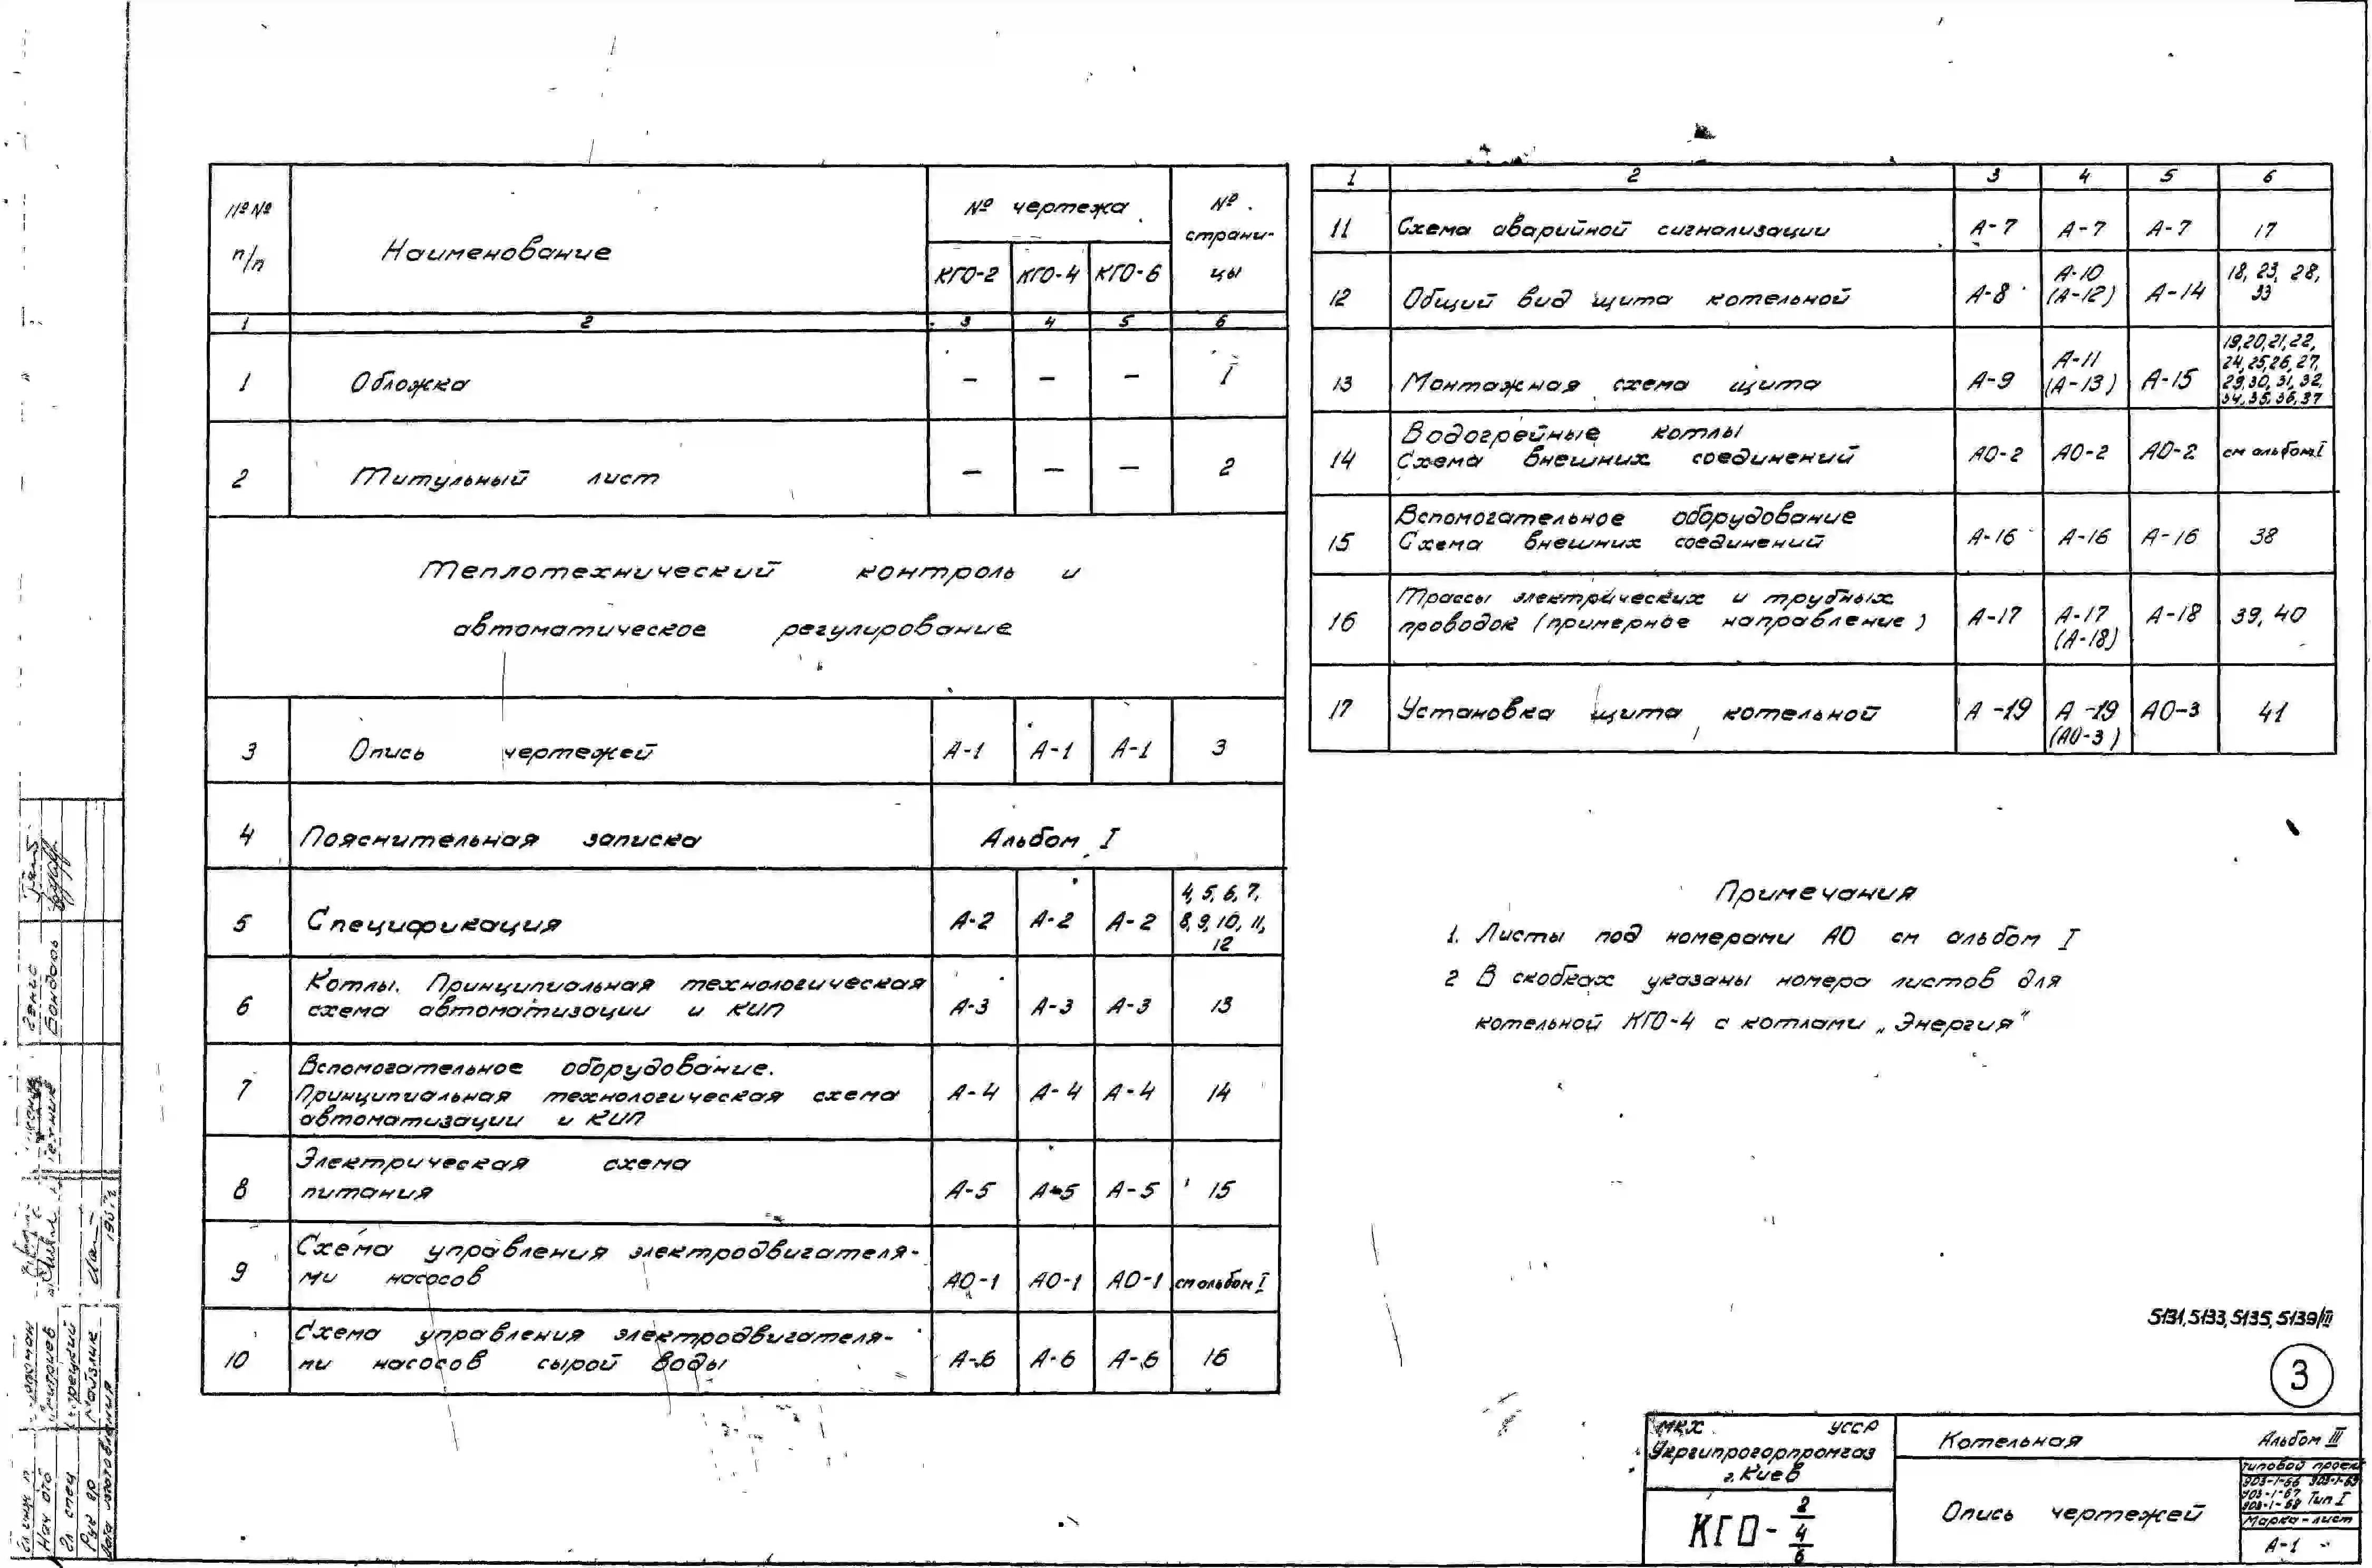 №№ п/п Наименование № чертежа № страни-
цы
КГО-2 КГО-4 КГО-6
1 2 3 4 5 6
1 Обложка — — — 1
2 Титульный лист — — — 2
Теплотехнический контроль и
автоматическое регулирование
3 Опись чертежей А-1 А-1 А-1 3
4 Пояснительная записка Альбом I
5 Спецификация А-2 А-2 А-2 4, 5, 6, 7,
8, 9, 10, 11,
12
Котлы. Принципиальная технологическая
6 схема автоматизации и КИП А-3 А-3 А-3 13
Вспомогательное оборудование.
7 Принципиальная технологическая схема А-4 А-4 А-4 14
автоматизации и КИП
Электрическая схема
8 питания А-5 А-5 А-5 15
Схема управления электродвигателя-
9 ми насосов АО-1 АО-1 АО-1 см альбом I
Схема управления электродвигателя-
10 ми насосов сырой воды А-6 А-6 А-6 16
1 2 3 4 5 6
11 Схема аварийной сигнализации А-7 А-7 А-7 17
12 Общий вид щита котельной А-8 А-10 (А-12) А-14 18, 23, 28,
33
13 Монтажная схема щита А-9 А-11 (А-13) А-15 19,20,21,22,
24,25,26,27,
29,30,31,32,
34,35,36,37
Водогрейные котлы
14 Схема внешних соединений АО-2 АО-2 АО-2 см альбом I
Вспомогательное оборудование
15 Схема внешних соединений А-16 А-16 А-16 38
Трассы электрических и трубных
16 проводок (примерное направление) А-17 А-17 (А-18) А-18 39, 40
17 Установка щита котельной А-19 А-19 (АО-3) АО-3 41
Примечания
1. Листы под номерами АО см альбом I
2 В скобках указаны номера листов для
котельной КГО-4 с котлами „Энергия"
5131, 5133, 5135, 5139/III
3
МКХ УССР
Укргипрогорпромгаз
г. Киев
КГО-2/4/6
Котельная Альбом III
Опись чертежей
Типовой проект
903-1-66 903-1-69
903-1-67
903-1-68 Тип I
Марка-лист
А-1
Нач отд
Гл спец
Рук гр Майзлик
Дата изготовления
Бондарь